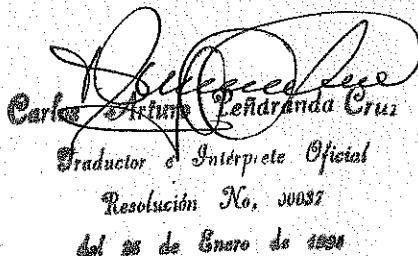 Carlos Arturo Peñaranda Cruz
Traductor e Intérprete Oficial
Resolución No. 00037
del 26 de Enero de 1998